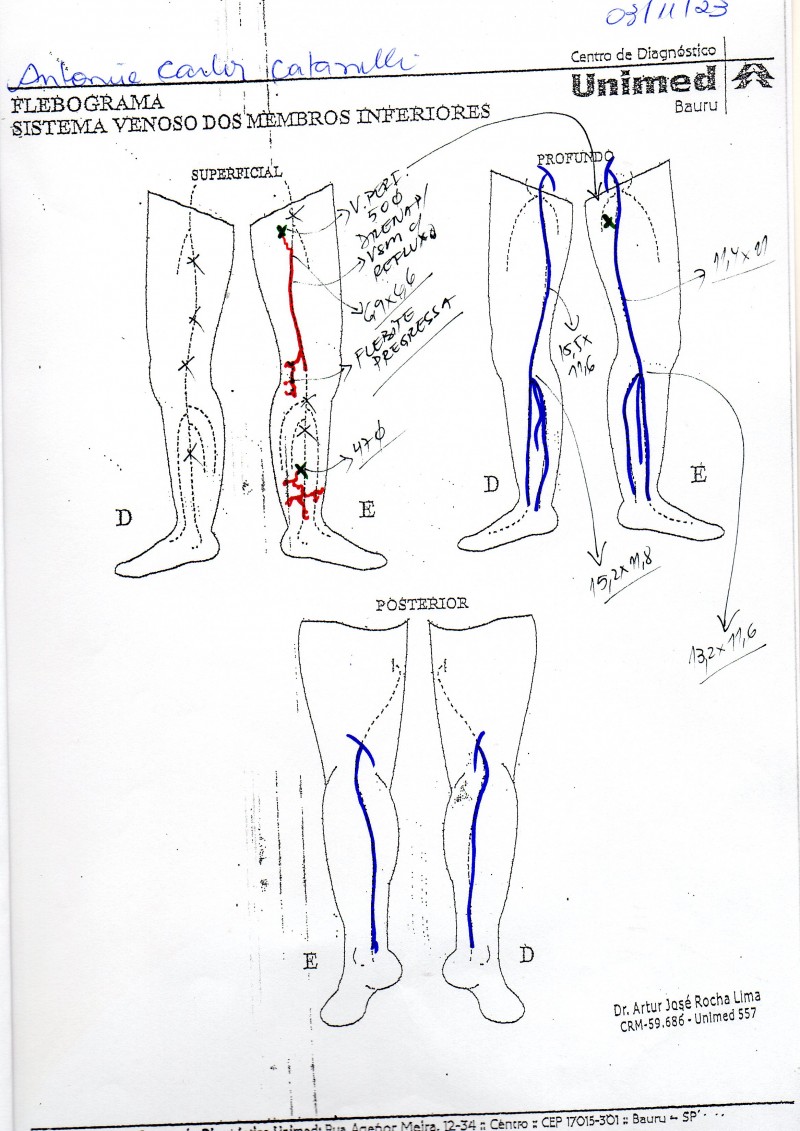 03/11/23
Centro de Diagnóstico
Unimed
Bauru
FLEBOGRAMA
SISTEMA VENOSO DOS MEMBROS INFERIORES
SUPERFICIAL
PROFUNDO
V. PERF.
50φ
DRENA P/
VSM C/
REFLUXO
6,9x4,6
FLEBITE
PREGRESSA
47φ
15,5x
11,6
D
E
D
E
15,2x11,8
13,2x11,6
POSTERIOR
E
D
Dr. Artur José Rocha Lima
CRM-59.686 - Unimed 557
Unimed: Rua Agenor Meira, 12-34 :: Centro :: CEP 17015-301 :: Bauru - SP